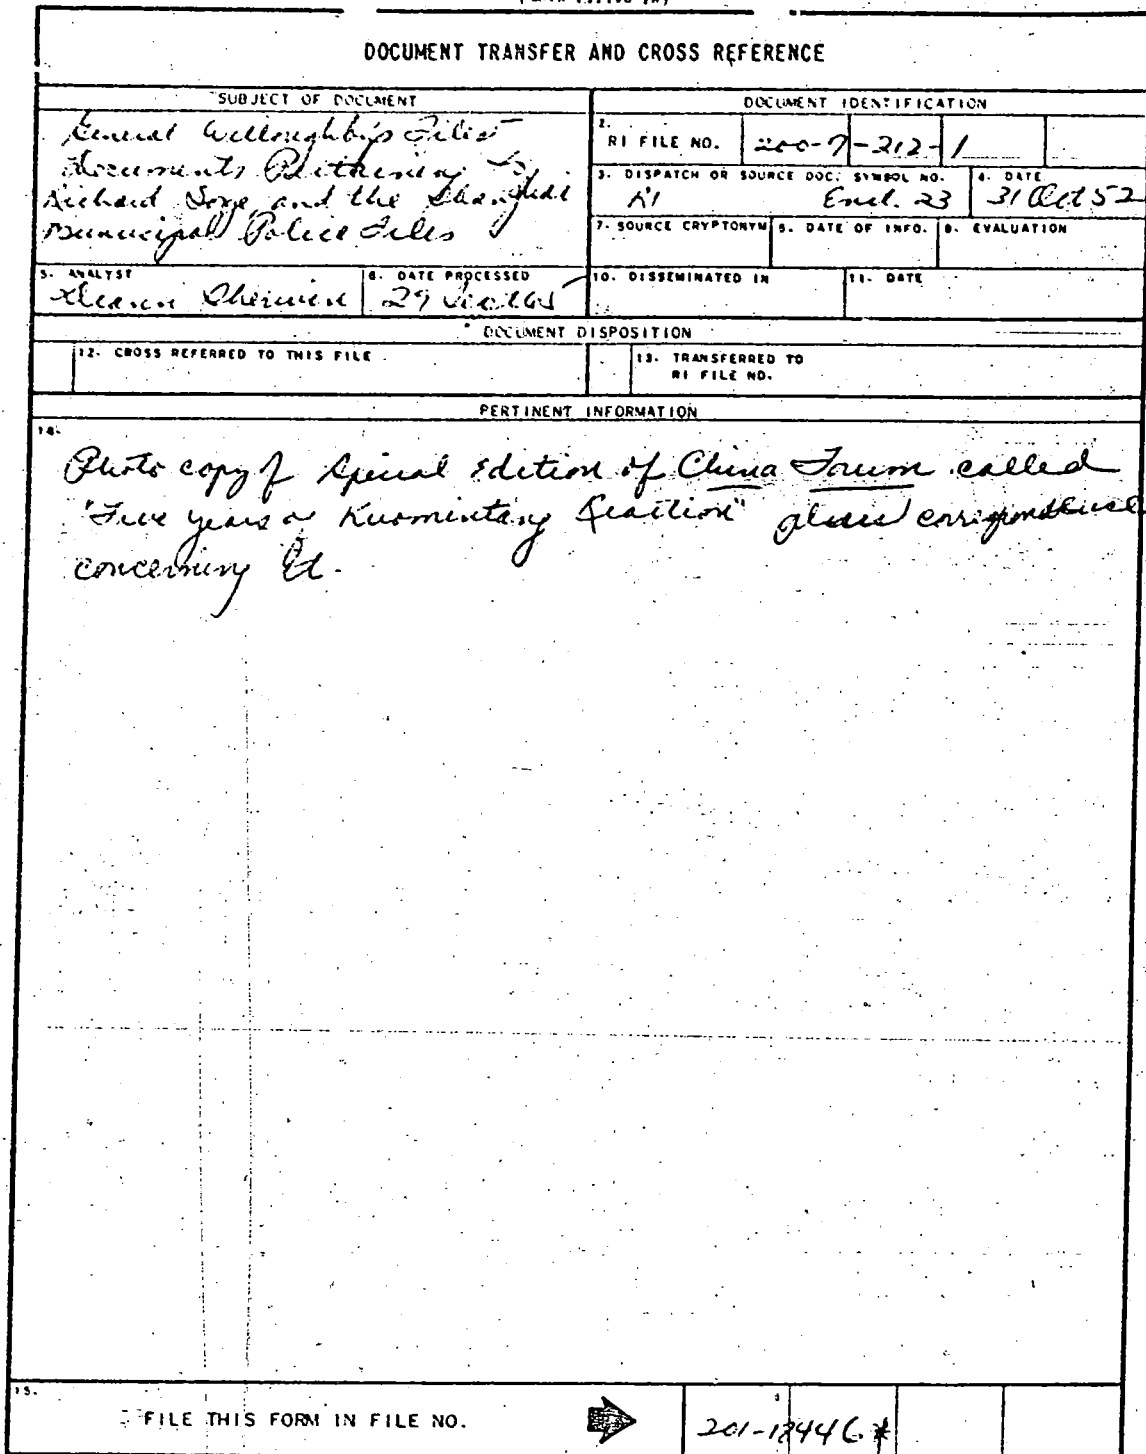 DOCUMENT TRANSFER AND CROSS REFERENCE
SUBJECT OF DOCUMENT
General Willoughby's Files
Documents Pertaining to
Richard Sorge and the Shanghai
Municipal Police Files
DOCUMENT IDENTIFICATION
2.
RI FILE NO. 200-7-212-1
3. DISPATCH OR SOURCE DOC. SYMBOL NO.
Encl. 23
4. DATE
31 Oct 52
7. SOURCE CRYPTONYM
8. DATE OF INFO.
9. EVALUATION
5. ANALYST
Sherwin
6. DATE PROCESSED
29
10. DISSEMINATED IN
11. DATE
DOCUMENT DISPOSITION
12. CROSS REFERRED TO THIS FILE
13. TRANSFERRED TO
RI FILE NO.
PERTINENT INFORMATION
14.
Photo copy of Special Edition of China Forum called
"Five years of Kuomintang Reaction" correspondence
concerning it.
15.
FILE THIS FORM IN FILE NO.
201-18446*